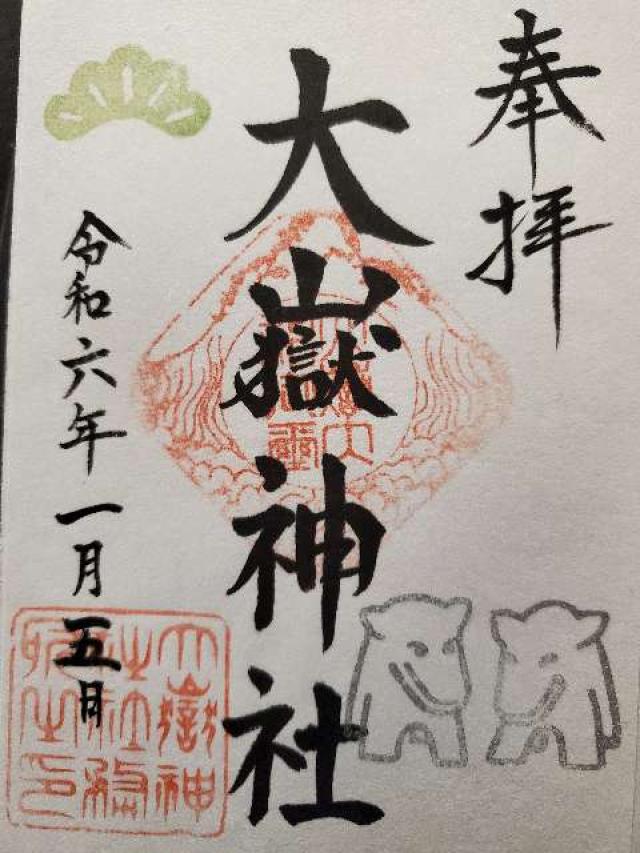 奉拝
大嶽神社
令和六年一月五日
大嶽神
社社務